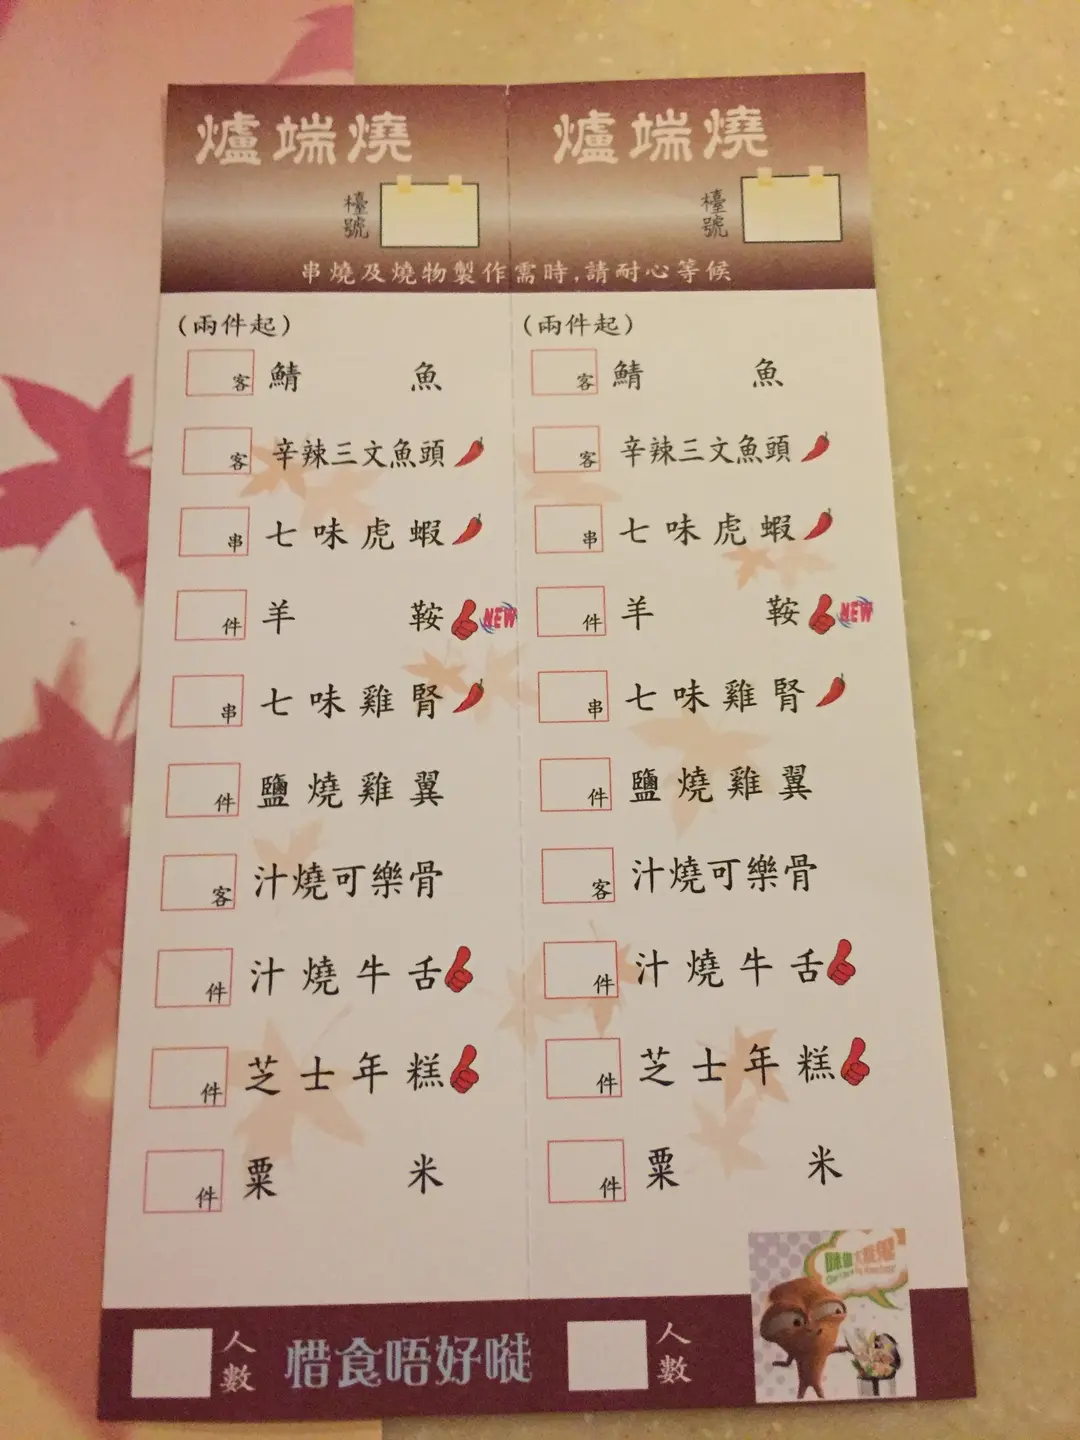 爐端燒
檯號
爐端燒
檯號
串燒及燒物製作需時,請耐心等候
(兩件起)
客 鯖魚
客 辛辣三文魚頭
串 七味虎蝦
件 羊鞍 NEW
串 七味雞腎
件 鹽燒雞翼
客 汁燒可樂骨
件 汁燒牛舌
件 芝士年糕
件 粟米
(兩件起)
客 鯖魚
客 辛辣三文魚頭
串 七味虎蝦
件 羊鞍 NEW
串 七味雞腎
件 鹽燒雞翼
客 汁燒可樂骨
件 汁燒牛舌
件 芝士年糕
件 粟米
人數
惜食唔好嘥
人數